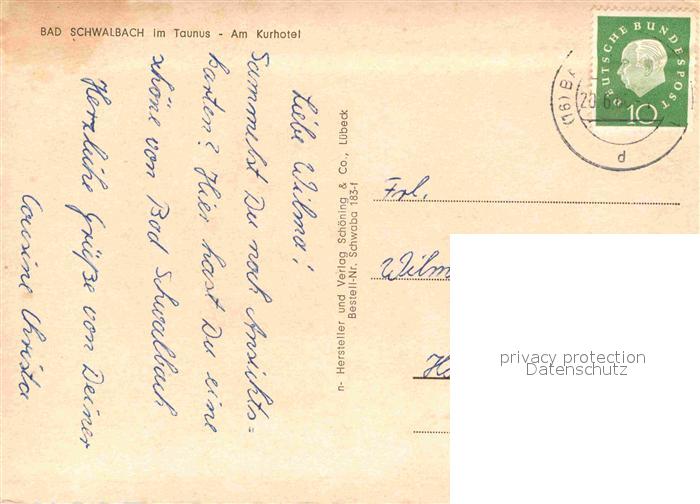 BAD SCHWALBACH im Taunus - Am Kurhotel
Liebe Wilma!
Sammelst Du noch Ansichts=
karten? Hier hast Du eine
schöne von Bad Schwalbach
Herzliche Grüße von Deiner
Cousine Christa
n- Hersteller und Verlag Schöning & Co., Lübeck
Bestell-Nr. Schwaba 183-f
DEUTSCHE BUNDESPOST
10
(16) BA
20.6
d
Frl.
Wilm
H
privacy protection
Datenschutz